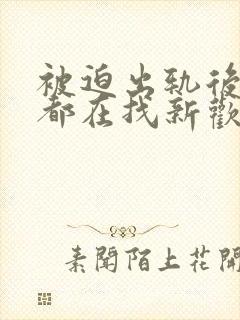 被迫出軌後
都在找新歡
素聞陌上花開